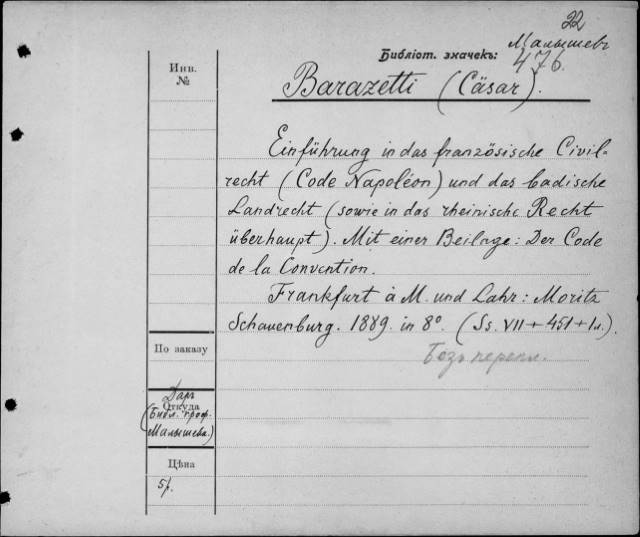 22
Малышевъ
Библіот. значекъ: 476.
Инв.
№
Barazetti (Cäsar).
Einführung in das französische Civil-
recht (Code Napoléon) und das badische
Landrecht (sowie in das rheinische Recht
überhaupt). Mit einer Beilage: Der Code
de la Convention.
Frankfurt à M. und Lahr: Moritz
Schauenburg. 1889. in 8º. (Ss. VII + 451 + 1 л.).
Безъ перепл.
По заказу
Даръ
Откуда
(Библ. проф.
Малышева.)
Цѣна
5 f.